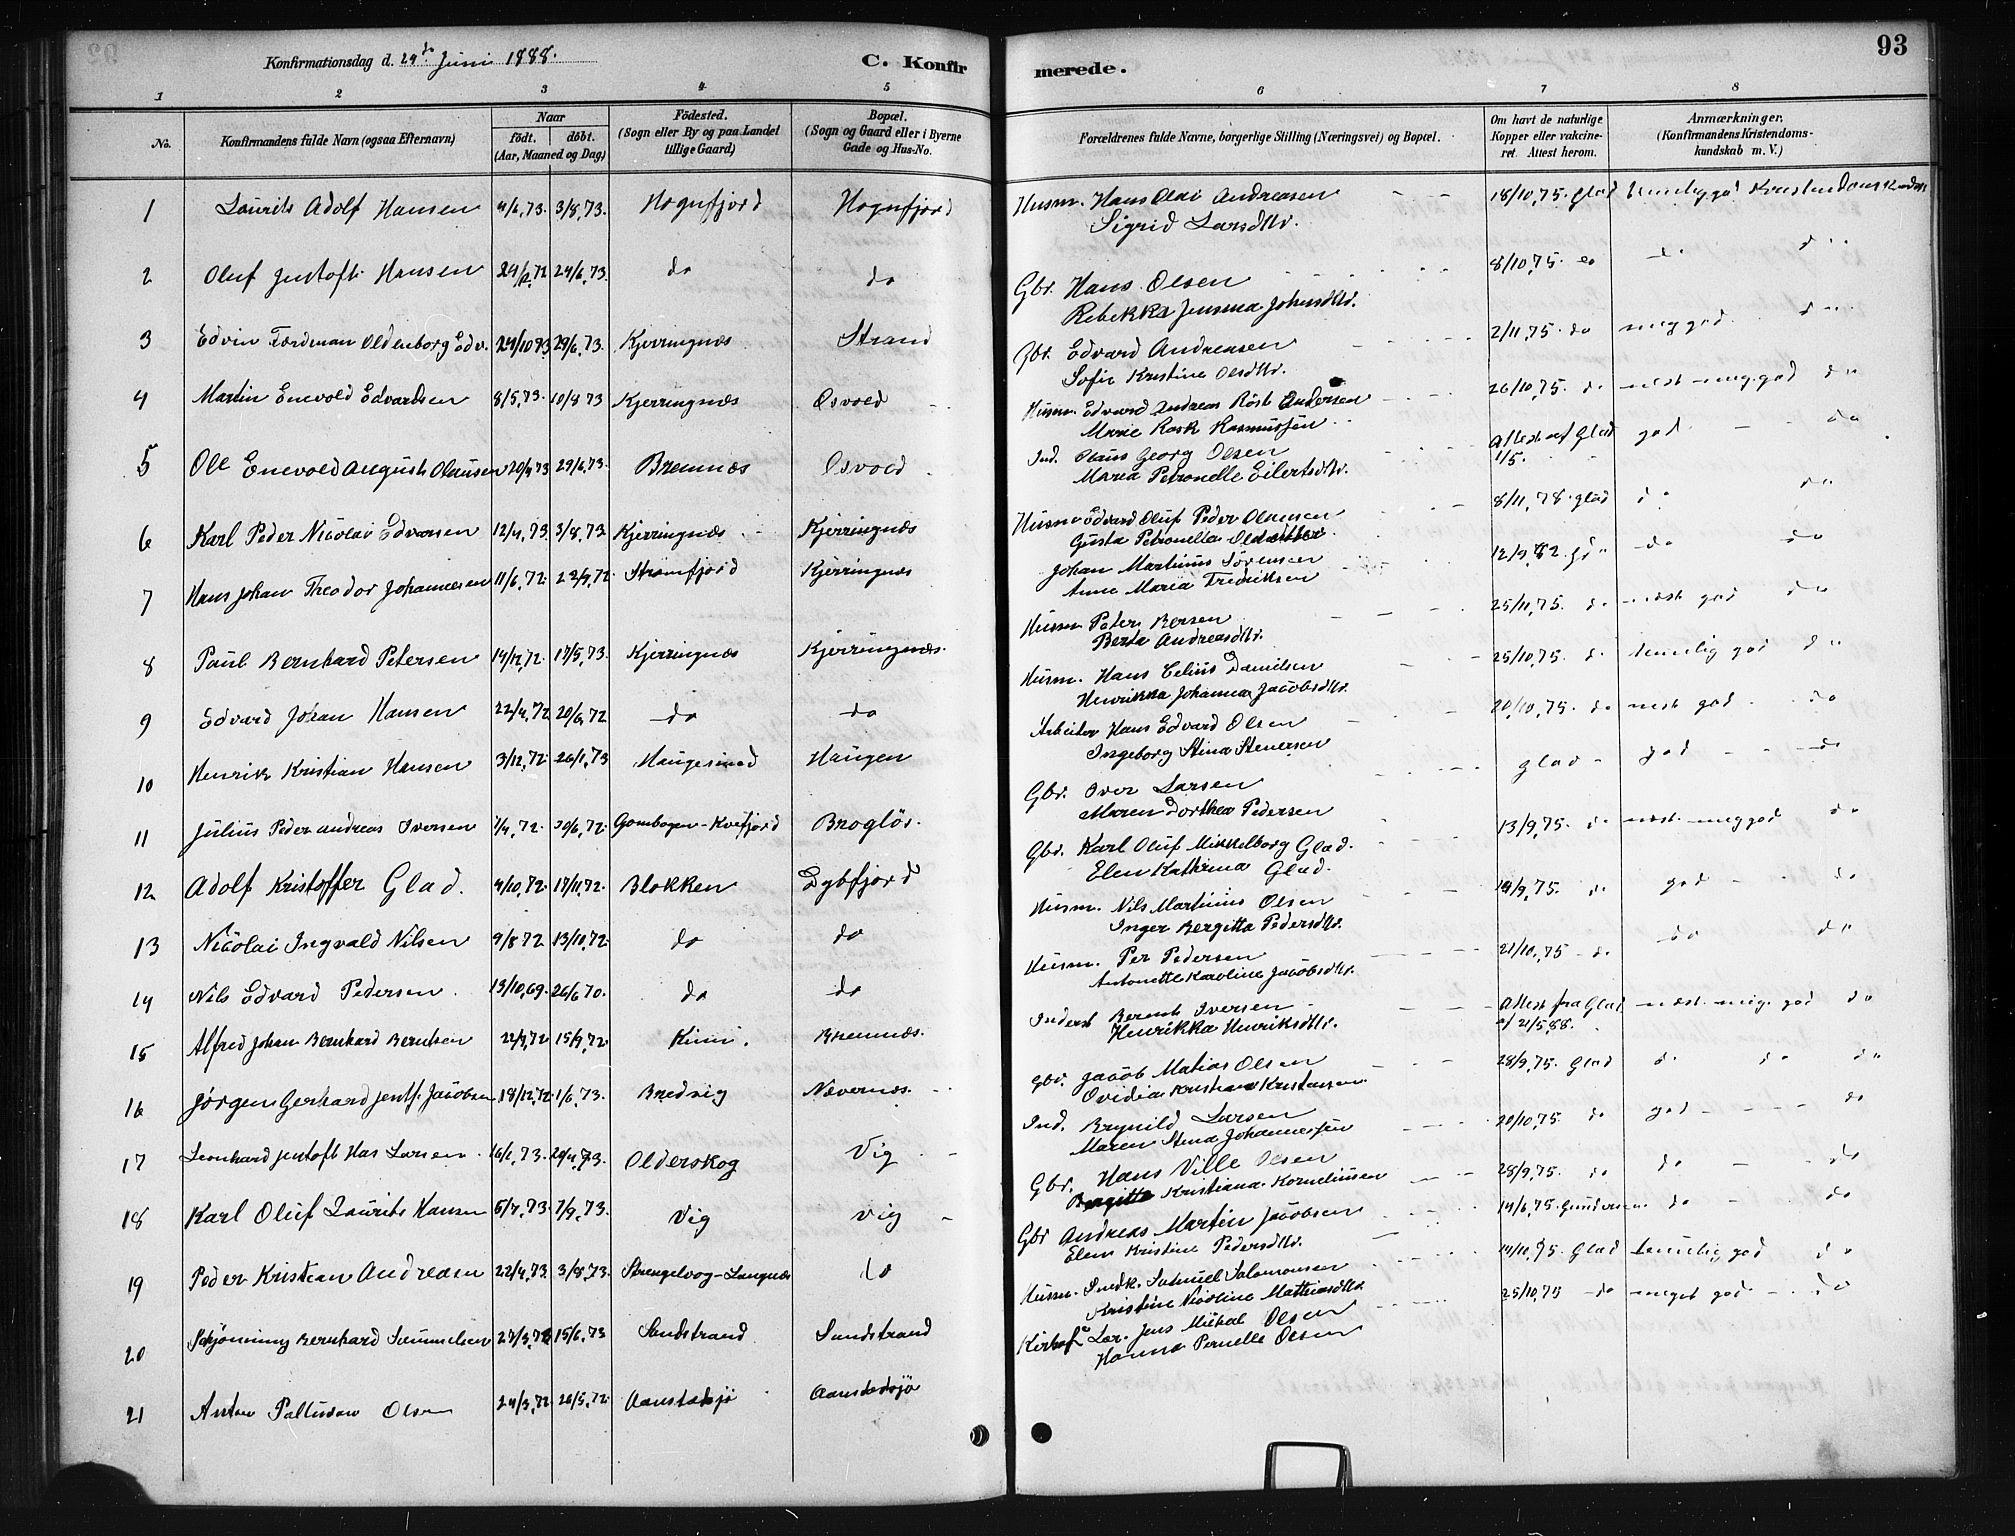 Konfirmationsdag d. 29de Juni 1888.
C. Konfir
merede.
93
1 2 3 4 5 6 7 8
No.
Konfirmandens fulde Navn (ogsaa Efternavn)
Naar
födt. döbt.
(Aar, Maaned og Dag)
Födested.
(Sogn eller By og paa Landet
tillige Gaard)
Bopæl.
(Sogn og Gaard eller i Byerne
Gade og Hus-No.
Forældrenes fulde Navne, borgerlige Stilling (Næringsvei) og Bopæl.
Om havt de naturlige
Kopper eller vakcine-
ret. Attest herom.
Anmærkninger.
(Konfirmandens Kristendoms-
kundskab m. V.)
1 Laurits Adolf Hansen 4/6,73. 3/8,73. Hognfjord Hognfjord
Husm. Hans Olai Andreasen 18/10,75. Glad temelig god Kristendoms
Sigrid Larsdttr.
2 Oluf Justoft Hansen 29/6,73. do do
Gbr. Hans Olsen 8/10,75. do do
Rebekka Jensina Johnsdttr.
3 Edvin Ferdinan Oldenborg Edv. 29/6,73. Kjerringnæs Strand
Gbr. Edvard Andreasen 2/11,75. do meg god do
Sofie Kristine Olsdttr.
4 Martin Enevold Edvardsen 8/5,73. 10/8 73 Kjerringnæs Osvold
Husm. Edvard Andreas Röst Andersen 26/10,75. do næst meg. god do
Marie Rask Rasmussen
5 Ole Enevold August Olausen 20/4 73 29/6,73. Bremnæs Osvold
Ind. Olaus Georg Olsen Attest af Glad god do
1/5.
Maria Petronelle Eilertsdttr.
6 Karl Peder Nicolai Edvarsen 12/4,73 3/8,73 Kjerringnæs Kjerringnæs
Husm Edvard Oluf Peder Olausen 8/11,78. glad do do
Gusta Petronella Olsdatter
7 Hans Johan Theodor Johannesen 11/6,72. 22/9,72 Strømfjord Kjerringnæs
Johan Martinus Sörensen 12/9,82. do do
Anne Maria Fredriksen
8 Paul Bernhard Petersen 14/12,72. 17/5,73. Kjerringnæs Kjerringnæs.
Husm Peter Bersen 25/11,75. do næst god do
Berta Andreasdttr.
9 Edvard Johan Hansen 22/4,72 20/6,72 do do
Husm. Hans Celius Danielsen 25/10,75. do temelig god do
Henrikka Johanna Jacobsdttr.
10 Henrik Kristian Hansen 3/12,72. 26/1,73 Haugesund Haugen
Arbeider Hans Edvard Olsen 20/10,75. do næst god do
Ingeborg Stina Stenersen
11 Julius Peder Andreas Iversen 7/4,72. 30/6,72. Gombogen-Kvefjord Broglör.
Gbr. Iver Larsen glad god do
Maren Dorthea Pedersen
12 Adolf Kristoffer Glad. 4/10,72. 17/11,72. Blokken Dybfjord
Gbr. Karl Oluf Mikkelborg Glad. 13/9,75. do næst meg god do
Elen Kathrina Glad.
13 Nicolai Ingvald Nilsen 9/8 72 13/10,72. do do
Husm. Nils Martinus Olsen 14/9,75. do god do
Inger Bergitta Pedersdttr.
14 Nils Edvard Pedersen. 13/10,69. 26/6 70. do do
Husm. Per Pedersen 21/10,75 do do do
Antonette Karoline Jacobsdttr.
15 Alfred Johan Bernhard Berntsen 22/7,72 15/9,72 Kinn. Bremnæs.
Inderst Bernt Iversen Attest fra Glad næst meg. god do
af 21/5,88.
Henrikka Henriksdttr.
16 Jørgen Gerhard Jentf. Jacobsen 18/12,72. 1/6,73. Bredvig Nævernæs.
Gbr. Jacob Matias Olsen 28/9,75. Glad do do do
Ovidia Kristiane Kristansen
17 Leonhard Jentoft Has Larsen 16/1,73. 20/4,73. Olderskog Vig
Ind. Brynild Larsen 20/10,75 do god do
Maren Stina Johannessen
18 Karl Oluf Laurits Hansen 5/7,73. 7/9,73. Vig Vig
Gbr. Hans Ville Olsen 28/9,75. do do do
Bergitta Kristiana Korneliussen
19 Peder Kristian Andreasen 22/4,73. 3/8,73. Strengelvog-Langnæs do
Gbr Andreas Martin Jacobsen 14/6,75. Gundersen do do
Elen Kristine Pedersdttr.
20 Schjönning Bernhard Samuelsen 27/3,73 15/6,73 Sandstrand Sandstrand
Husm. Samuel Salomonsen 14/10,75. Glad temelig god do
Kristine Nicoline Mathiasdttr.
21 Anton Paltudan Olsen 24/3,72 26/5,72. Aanstadsjö Aanstadsjö
Lar. Jens Mikal Olsen 25/10,75 do meget god do
Hanna Pernelle Olsen